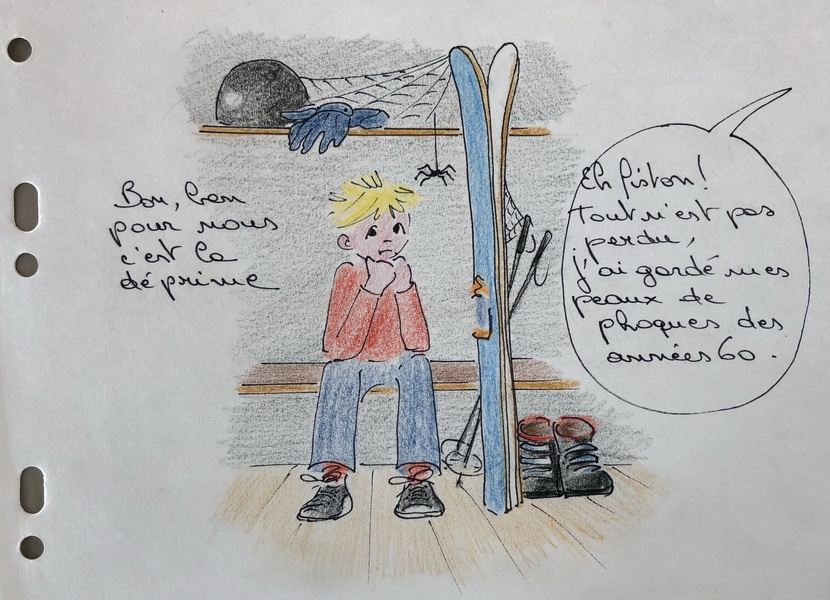 Bon, ben
pour nous
c'est la
déprime
Eh fiston!
Tout n'est pas
perdu,
j'ai gardé mes
peaux de
phoques des
années 60.